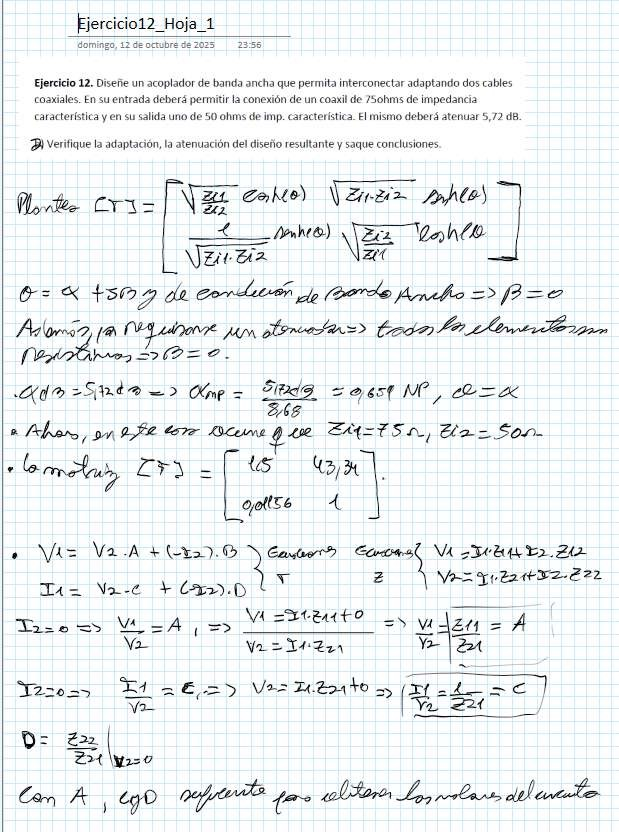 Ejercicio12_Hoja_1
domingo, 12 de octubre de 2025 23:56
Ejercicio 12. Diseñe un acoplador de banda ancha que permita interconectar adaptando dos cables
coaxiales. En su entrada deberá permitir la conexión de un coaxil de 75ohms de impedancia
característica y en su salida uno de 50 ohms de imp. característica. El mismo deberá atenuar 5,72 dB.
Verifique la adaptación, la atenuación del diseño resultante y saque conclusiones.
[T] = [ √(Zi1/Zi2) cosh(θ) √(Zi1·Zi2) senh(θ)
1/√(Zi1·Zi2) senh(θ) √(Zi2/Zi1) cosh(θ) ]
θ = α + jβ y de condición de Banda Ancha => β = 0
Además, se requiere un atenuador => todos los elementos son
resistivos => β = 0.
· αdB = 5,72dB => αNP = 5,72dB/8,68 = 0,659 NP, θ = α
• Ahora, en este caso ocurre que Zi1 = 75Ω, Zi2 = 50Ω
• La matriz [T] = [ 1,5 43,34
0,01156 1 ].
• V1 = V2·A + (-I2)·B } Ecuaciones T Ecuaciones Z { V1 = I1·Z11 + I2·Z12
I1 = V2·C + (-I2)·D V2 = I1·Z21 + I2·Z22
I2=0 => V1/V2 = A, => V1 = I1·Z11+0 / V2 = I1·Z21 => V1/V2 = Z11/Z21 = A
I2=0 => I1/V2 = C, => V2 = I1·Z21+0 => I1/V2 = 1/Z21 = C
D = Z22/Z21 | V2=0
Con A, C y D suficiente para obtener los valores del circuito